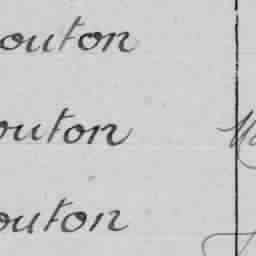 outon
outon
outon